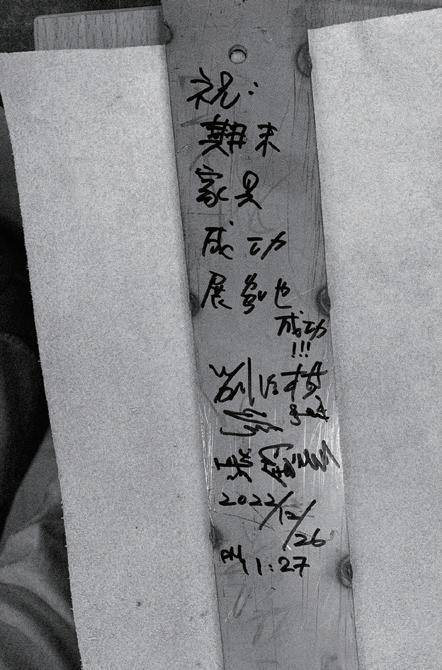 祝:
期末
家具
成功
展覽也
成功
!!!
2022/12/26
PM 1:27